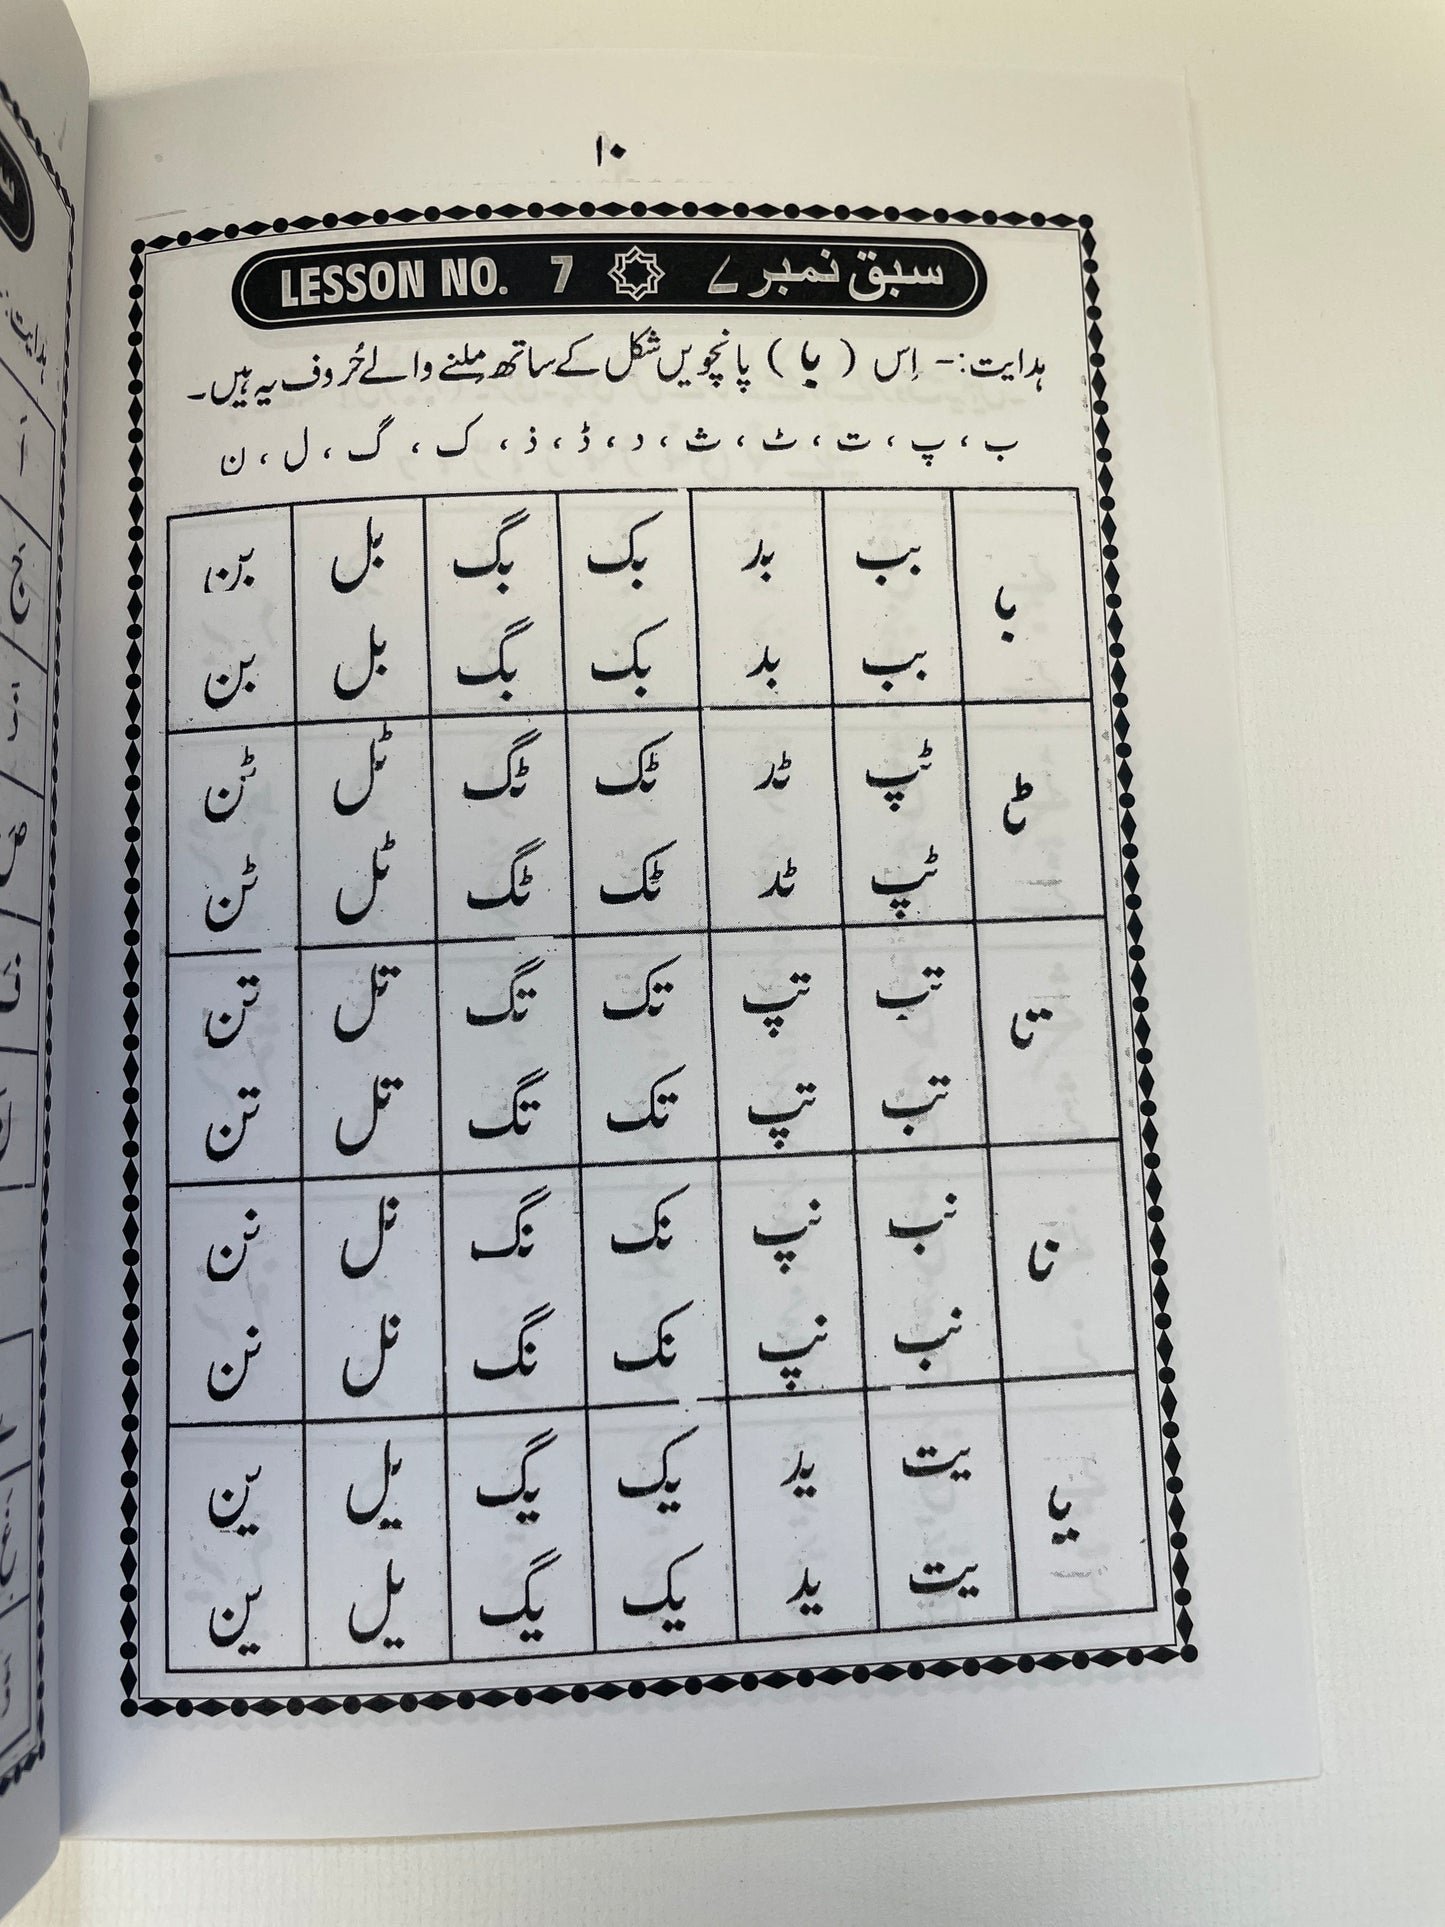 ۱۰
سبق نمبر ۷ LESSON NO. 7
ہدایت:- اِس ( با ) پانچویں شکل کے ساتھ مِلنے والے حُروف یہ ہیں۔
ب ، پ ، ت ، ٹ ، ث ، د ، ڈ ، ذ ، ک ، گ ، ل ، ن
با بب بد بک بگ بل بن
بب بد بک بگ بل بن
ٹا ٹپ ٹد ٹک ٹگ ٹل ٹن
ٹپ ٹد ٹک ٹگ ٹل ٹن
تا تب تپ تک تگ تل تن
تب تپ تک تگ تل تن
نا نب نپ نک نگ نل نن
نب نپ نک نگ نل نن
یا یت ید یک یگ یل ین
یت ید یک یگ یل ین